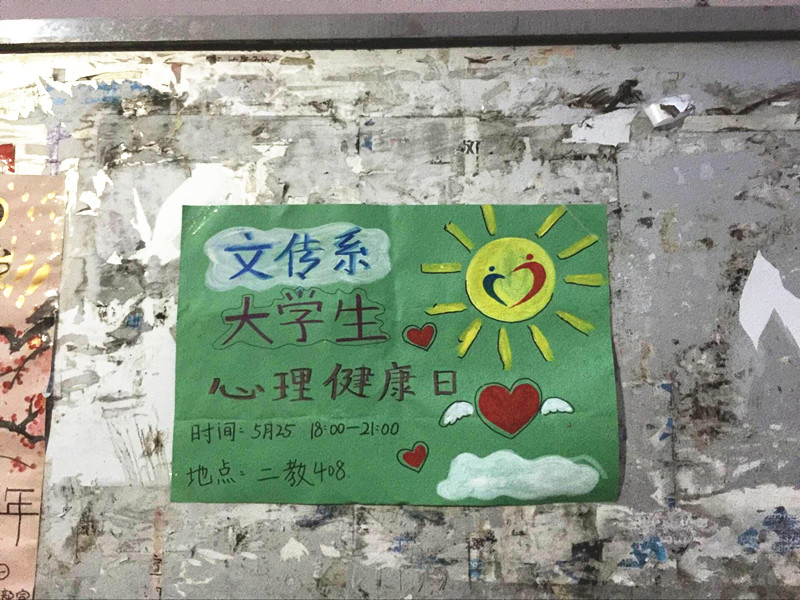 文传系
大学生
心理健康日
时间：5月25 18:00—21:00
地点：二教408.
年